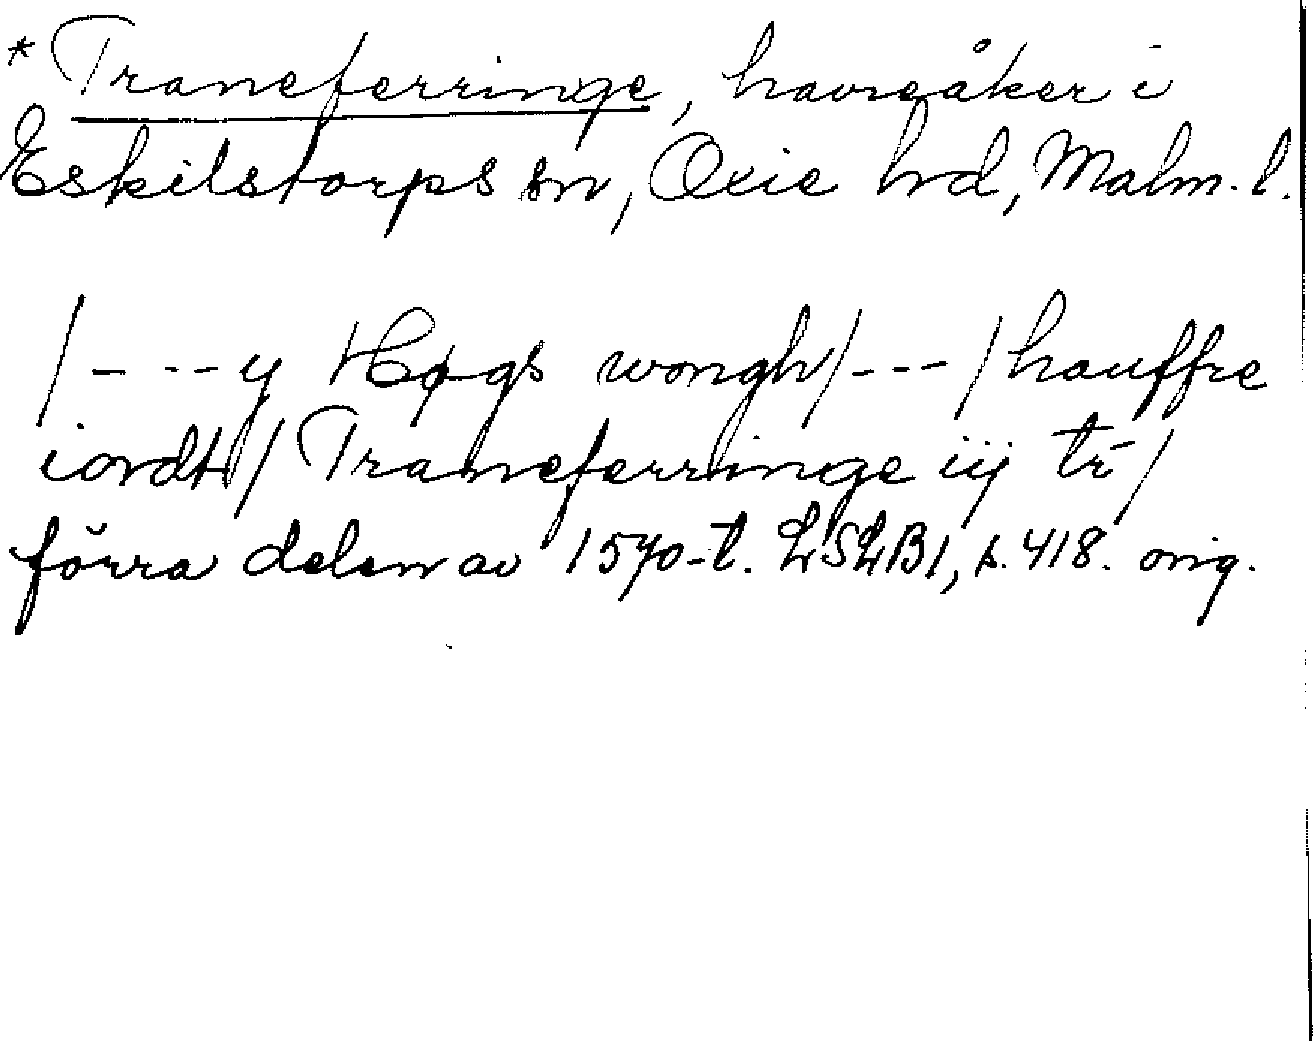 * Traneferringe, havreåker i
Eskilstorps sn, Oxie hd, Malm. l.
/- - - y Høgs wongh/- - - /hauffre
iordt/ Traneferringe iij tr̄/
förra delen av 1570-t. LSLB1, s. 418. orig.